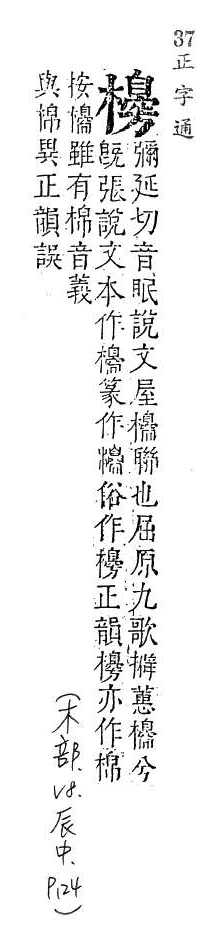 37正字通
櫋
彌延切音眠說文屋櫋聯也屈原九歌擗蕙櫋兮
旣張說文本作櫋篆作俗作櫋正韻櫋亦作棉
按櫋雖有棉音義
與棉異正韻誤
(木部、v8.辰中、P.124)